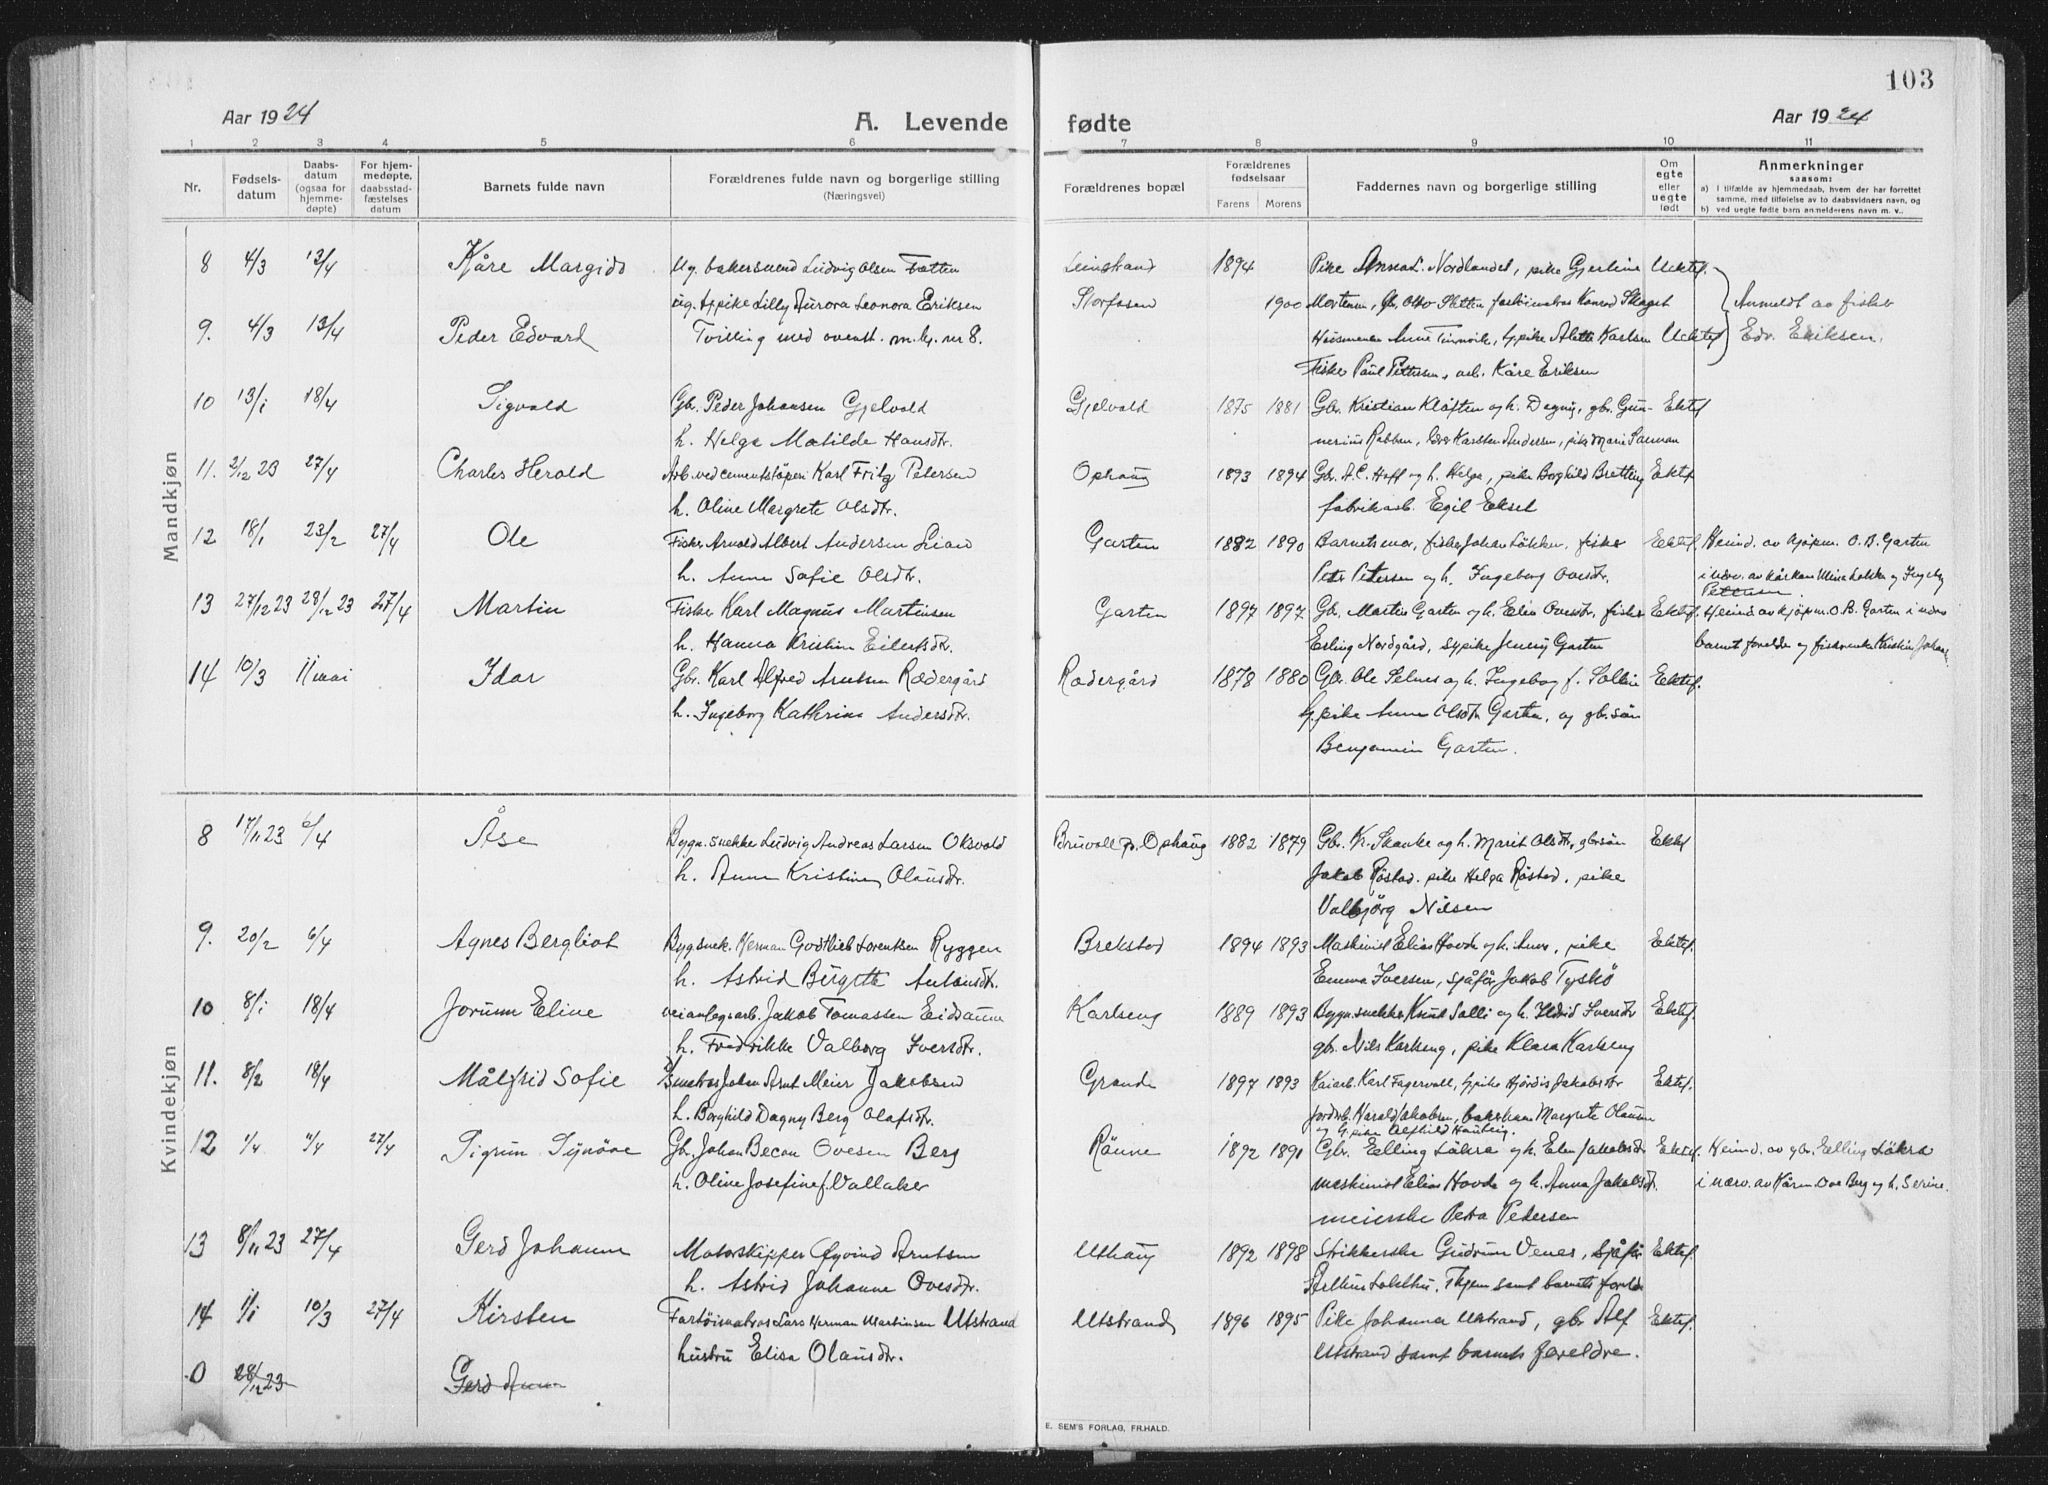 103
Aar 1924 A. Levende fødte Aar 1924
1 2 3 4 5 6 7 8 9 10 11
Nr. Fødsels-datum Daabs-datum (ogsaa for hjemme-døpte) For hjem-medøpte, daabsstad-fæstelses datum Barnets fulde navn Forældrenes fulde navn og borgerlige stilling (Næringsvei) Forældrenes bopæl Forældrenes fødselsaar Farens Morens Faddernes navn og borgerlige stilling Om egte eller uegte født Anmerkninger saasom:
a) I tilfælde av hjemmedaab, hvem der har forrettet samme, med tilføielse av to daabsvidners navn, og
b) ved uegte fødte barn anmelderens navn m. v..
Mandkjøn
8 4/3 13/4 Kåre Margido Ug. bakersvend Ludvig Olsen Tætten Leinstrand 1894 Pike Anna L. Nordlandet, pike Gjertine Uektef.
ug. tjpike Lilly Aurora Leonora Eriksen Storfosen 1900 Mortensen, Gb. Otto Sletten Konrad Anmeldt av fisker
9. 4/3 13/4 Peder Edvard Tvilling med ovenst. m.kj. nr 8. Anne, tjpike Alette Karlsen Uektef Edv. Eriksen.
Fisker Paul Pettersen, arb. Kåre Eriksen
10 13/1 18/4 Sigvald Gbr. Peder Johansen Gjelvold Gjelvold 1875 1881 Gbr. Kristian Kløften og h. Dagny, gbr. Gun- Ektef
h. Helga Matilde Hansdtr. nerius Rabben, Karsten Andersen, pike Marie
11. 2/12 23 27/4 Charles Herold Arb. ved cementstøperi Karl Fritz Petersen Ophaug 1893 1894 Gbr. A. C. Hoff og h. Helga, pike Borghild Bretting Ektef
h. Oline Margrete Olsdtr. fabrikarb. Egil Ekset
12 18/1 23/2 27/4 Ole Fisker Arnold Albert Andersen Lian Garten 1882 1890 Barnets mor, fisker Johan Løkken, fisker Ektef. Heimd. av kjøpm. O. B. Garten
h. Anna Sofie Olsdtr. Peter Petersen og h. Ingeborg Ovesdtr. i nærv. av kårkone Mina Løkken og Ingebg
Pettersen
13 27/12 23 28/12 23 27/4 Martin Fisker Karl Magnus Martinsen Garten 1897 1897 Gbr. Martin Garten og h. Elen Ovesdtr, fisker Ektef. Heimd av kjøpm. O. B. Garten i nærv
h. Hanna Kristine Eilertsdtr. Erling Nordgård, tjpike Jenny Garten barnet forelde og fiskerenke Kristine Johans.
14 10/3 11 mai Idar Gbr. Karl Alfred Arntsen Rødergård Rødergård 1878 1880 Gbr. Ole Selnes og h. Ingeborg f. Sollie Ektef.
h. Ingeborg Kathrine Andersdtr. tjpike Anna Olsdtr Garten, og gbr.søn
Benjamin Garten.
Kvindekjøn
8 17/11 23 6/4 Åse Bygn.snekker Ludvig Andreas Larsen Oksvold Bruvoll pr. Ophaug 1882 1879 Gbr. K. Skanke og h. Marit Olsdtr, gbrsøn Ektef
h. Anna Kristine Olausdtr. Jakob Røstad. pike Helga Røstad, pike
Valbjørg Nilsen
9. 20/2 6/4 Agnes Bergliot Bygsnek. Herman Godtlieb Lorentsen Ryggen Brekstad 1894 1893 Maskinist Elias Hovde og h. Anna, pike Ektef.
h. Astrid Birgitte Antonsdtr. Emma Iversen, sjåfør Jakob Tyskø
10 8/1 18/4 Jorunn Eline veianlegsarb. Jakob Tomassen Eidsaune Karlseng 1889 1893 Bygn.snekker Knut Solli og h. Ildrid Iversdtr Ektef.
h. Fredrikke Valborg Iversdtr. gbr. Nils Karlseng, pike Klara Karlseng
11. 8/2 18/4 Målfrid Sofie Johan Arnt Meier Jakobsen Grande 1897 1893 Kaiarb. Karl Fagervoll, tjpike Hjördis Jakobsdtr Ektef.
h. Borghild Dagny Berg Olafsdtr. Harald Jakobsen, Margrete Olausen
og tj.pike Alfhild Hauteig.
12 1/4 4/4 27/4 Sigrun Synøve Gb. Johan Becan Ovesen Berg Rønne 1892 1891 Gbr. Elling Løkra og h. Elen Jakobsdtr Ektef. Heimd. av gbr. Elling Løkra
h. Oline Josefine f. Vallaker maskinist Elias Hovde og h. Anna Jakobsdtr. i nærv. av Kårm. Ove Berg og h. Serine.
meierske Petra Pedersen
13 8/11 23 27/4 Gerd Johanne Motorskipper Øyvind Arntsen Uthaug 1892 1898 Strikkerske Gudrun Venes, sjåfør Ektef.
h. Astrid Johanne Ovesdtr. samt barnets foreldre
14 1/1 10/3 27/4 Kirsten Fartøimatros Lars Herman Martinsen Utstrand Utstrand 1896 1895 Pike Johanna Utstrand, gbr Alf Ektef.
hustru Elisa Olausdtr. Utstrand samt barnets foreldre.
0 28/12 23 Gerd Anna
E. SEM'S FORLAG, FR.HALD.